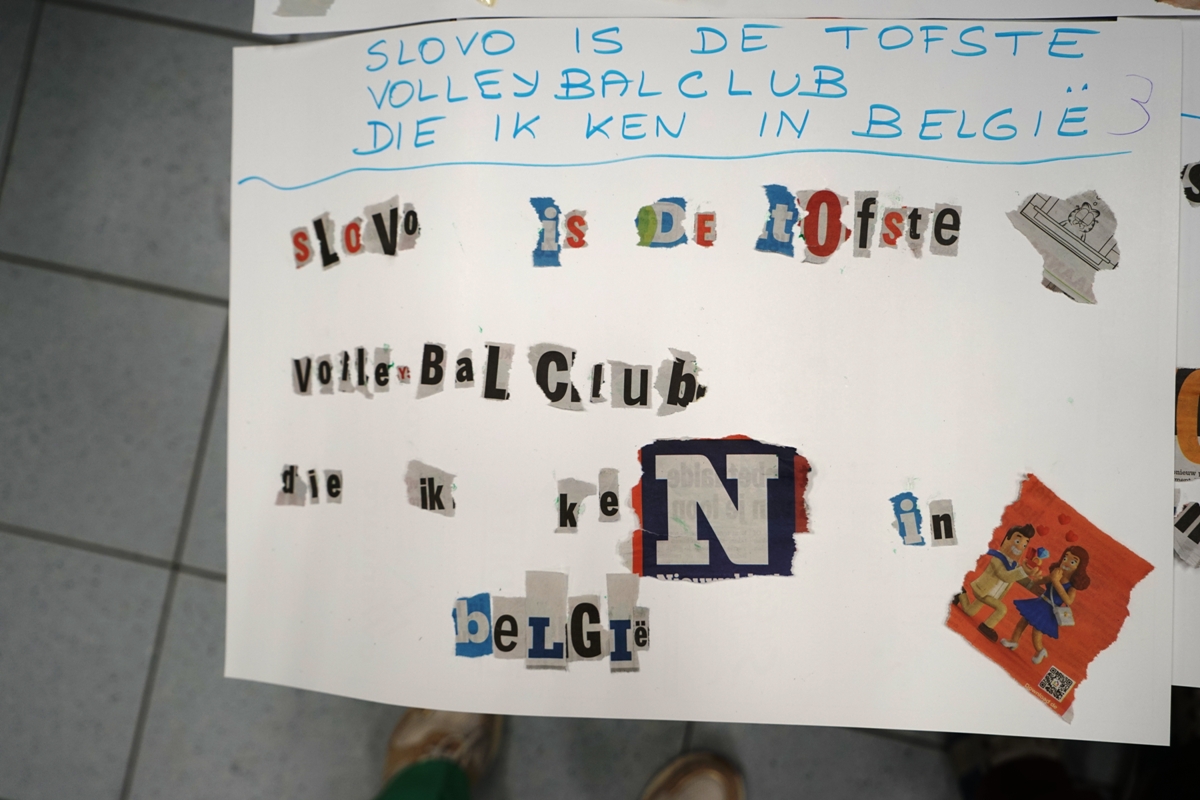 SLOVO IS DE TOFSTE
VOLLEYBALCLUB
DIE IK KEN IN BELGIË 3
sLoVo is DE tOfste
VolleYBaLClub
die ik keN in
beLGIë